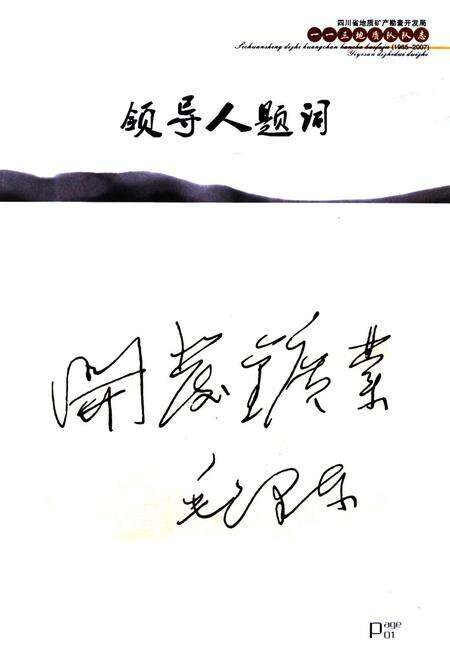 四川省地质矿产勘查开发局
一一三地质队队志
Sichuansheng dizhi kuangchan kancha kaifaju (1965-2007)
Yiyisan dizhidui duizhi
领导人题词
開發鑛業
毛泽东
Page
01